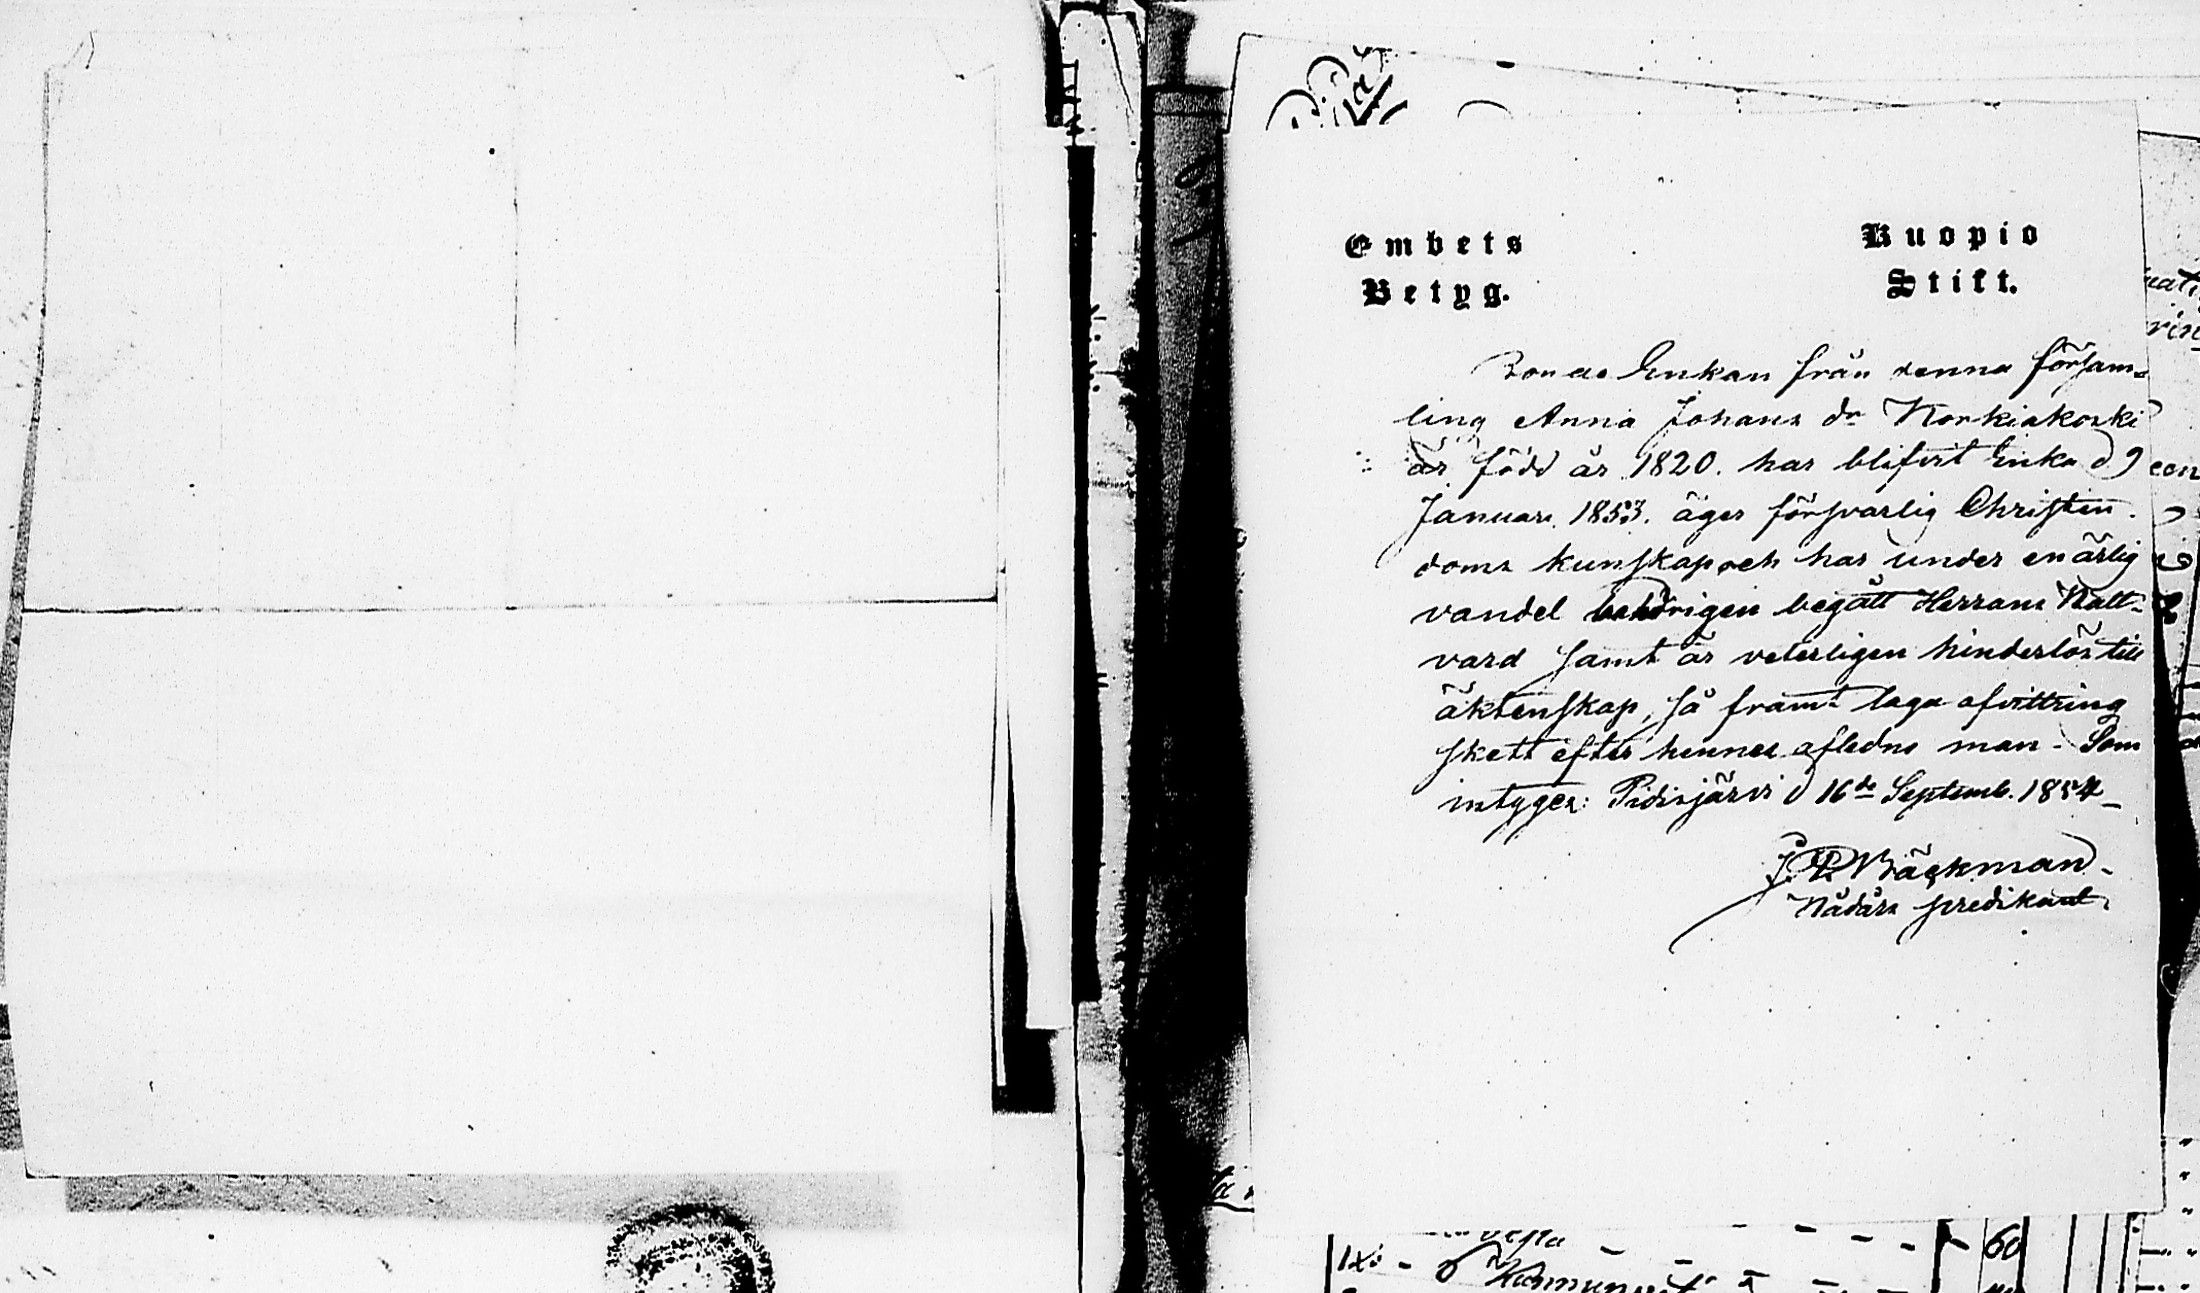 Embets
Betyg.
Kuopio
Stift.
Bonde Enkan från denna försam-
ling Anna Johans dr Korkiakoski
är född år 1820. har blifvit Enka d 9
Januari 1853. äger försvarlig Christen-
doms kunskap och har under en ärlig
vandel behörigen begått Herrans Natt-
vard samt är veterligen hinderlös till
äktenskap, så framt laga afvittring
skett efter hennes aflidne man. Som
intyger: Pidisjärvi d 16de Septemb. 1854
J. P. Bäckman.
Nådårs predikant
60